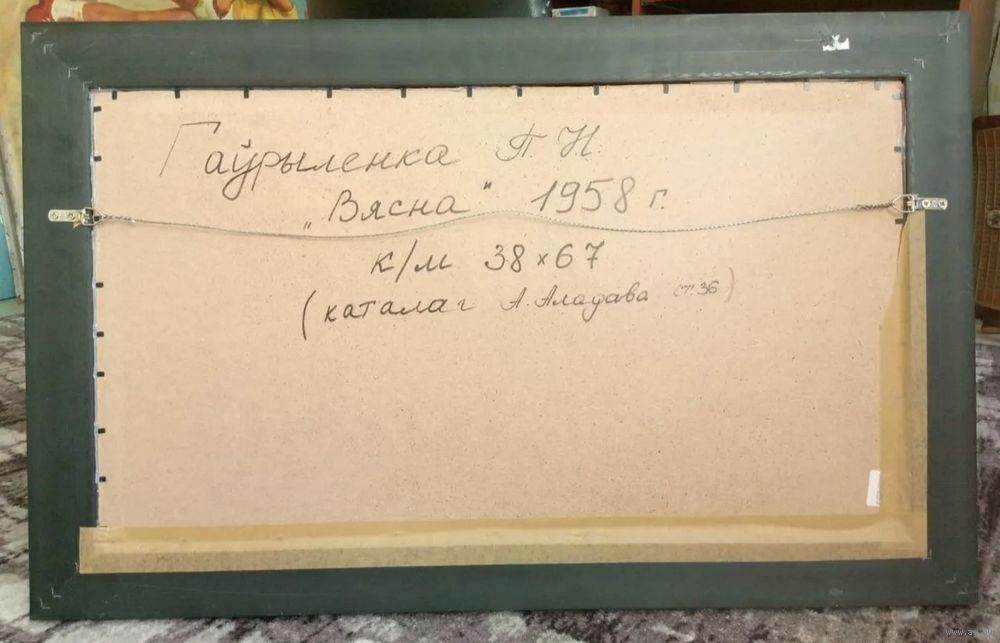 Гаўрыленка П. Н.
„Вясна" 1958 г.
к/м 38×67
(каталаг А. Аладава ст. 36)